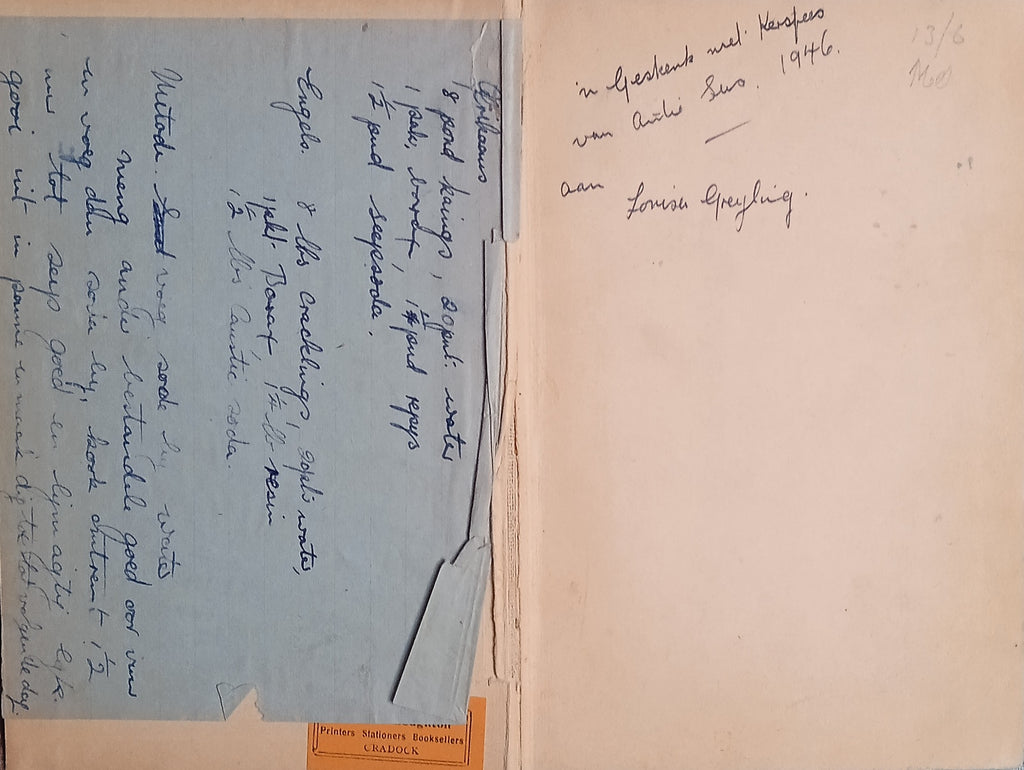 Afrikaans
8 pond kaings, 20 pnts water
1 pak, borax, 1½ pond
1½ pond seepsoda.
Engels. 8 lbs cracklings, 20 pts water,
1 pkt Borax, 1½ lb resin
1½ lbs Caustic soda.
Metode. voeg soda by water
meng ander bestandele goed oor vuur
en voeg dan soda by, kook omtrent 1½
uur tot seep goed en lyk.
gooi uit in panne en maak dig toe tot volgende dag.
Printers Stationers Booksellers
CRADOCK
'n Geskenk met Kersfees
van Antie Sus. 1946.
aan Louisa Greyling.
13/6